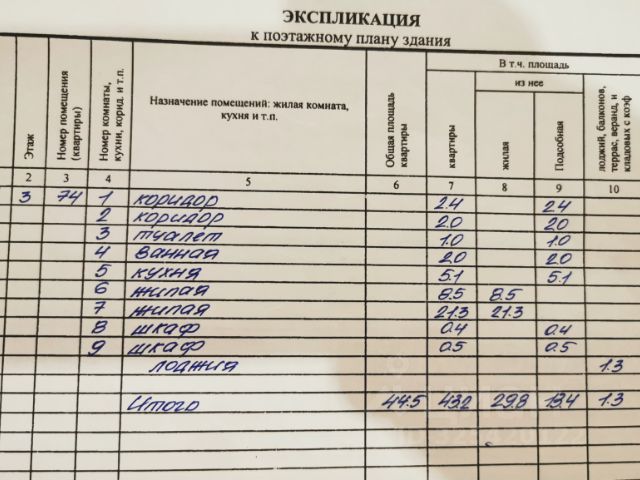 ЭКСПЛИКАЦИЯ
к поэтажному плану здания
Этаж
Номер помещения (квартиры)
Номер комнаты, кухни, корид. и т.п.
Назначение помещений: жилая комната, кухня и т.п.
Общая площадь квартиры
В т.ч. площадь
квартиры
из нее
жилая
Подсобная
лоджий, балконов, террас, веранд, и кладовых с коэф
2 3 4 5 6 7 8 9 10
3 74 1 коридор 2.4 2.4
2 коридор 2.0 2.0
3 туалет 1.0 1.0
4 Ванная 2.0 2.0
5 кухня 5.1 5.1
6 жилая 8.5 8.5
7 жилая 21.3 21.3
8 шкаф 0.4 0.4
9 шкаф 0.5 0.5
лоджия 1.3
Итого 44.5 43.2 29.8 13.4 1.3